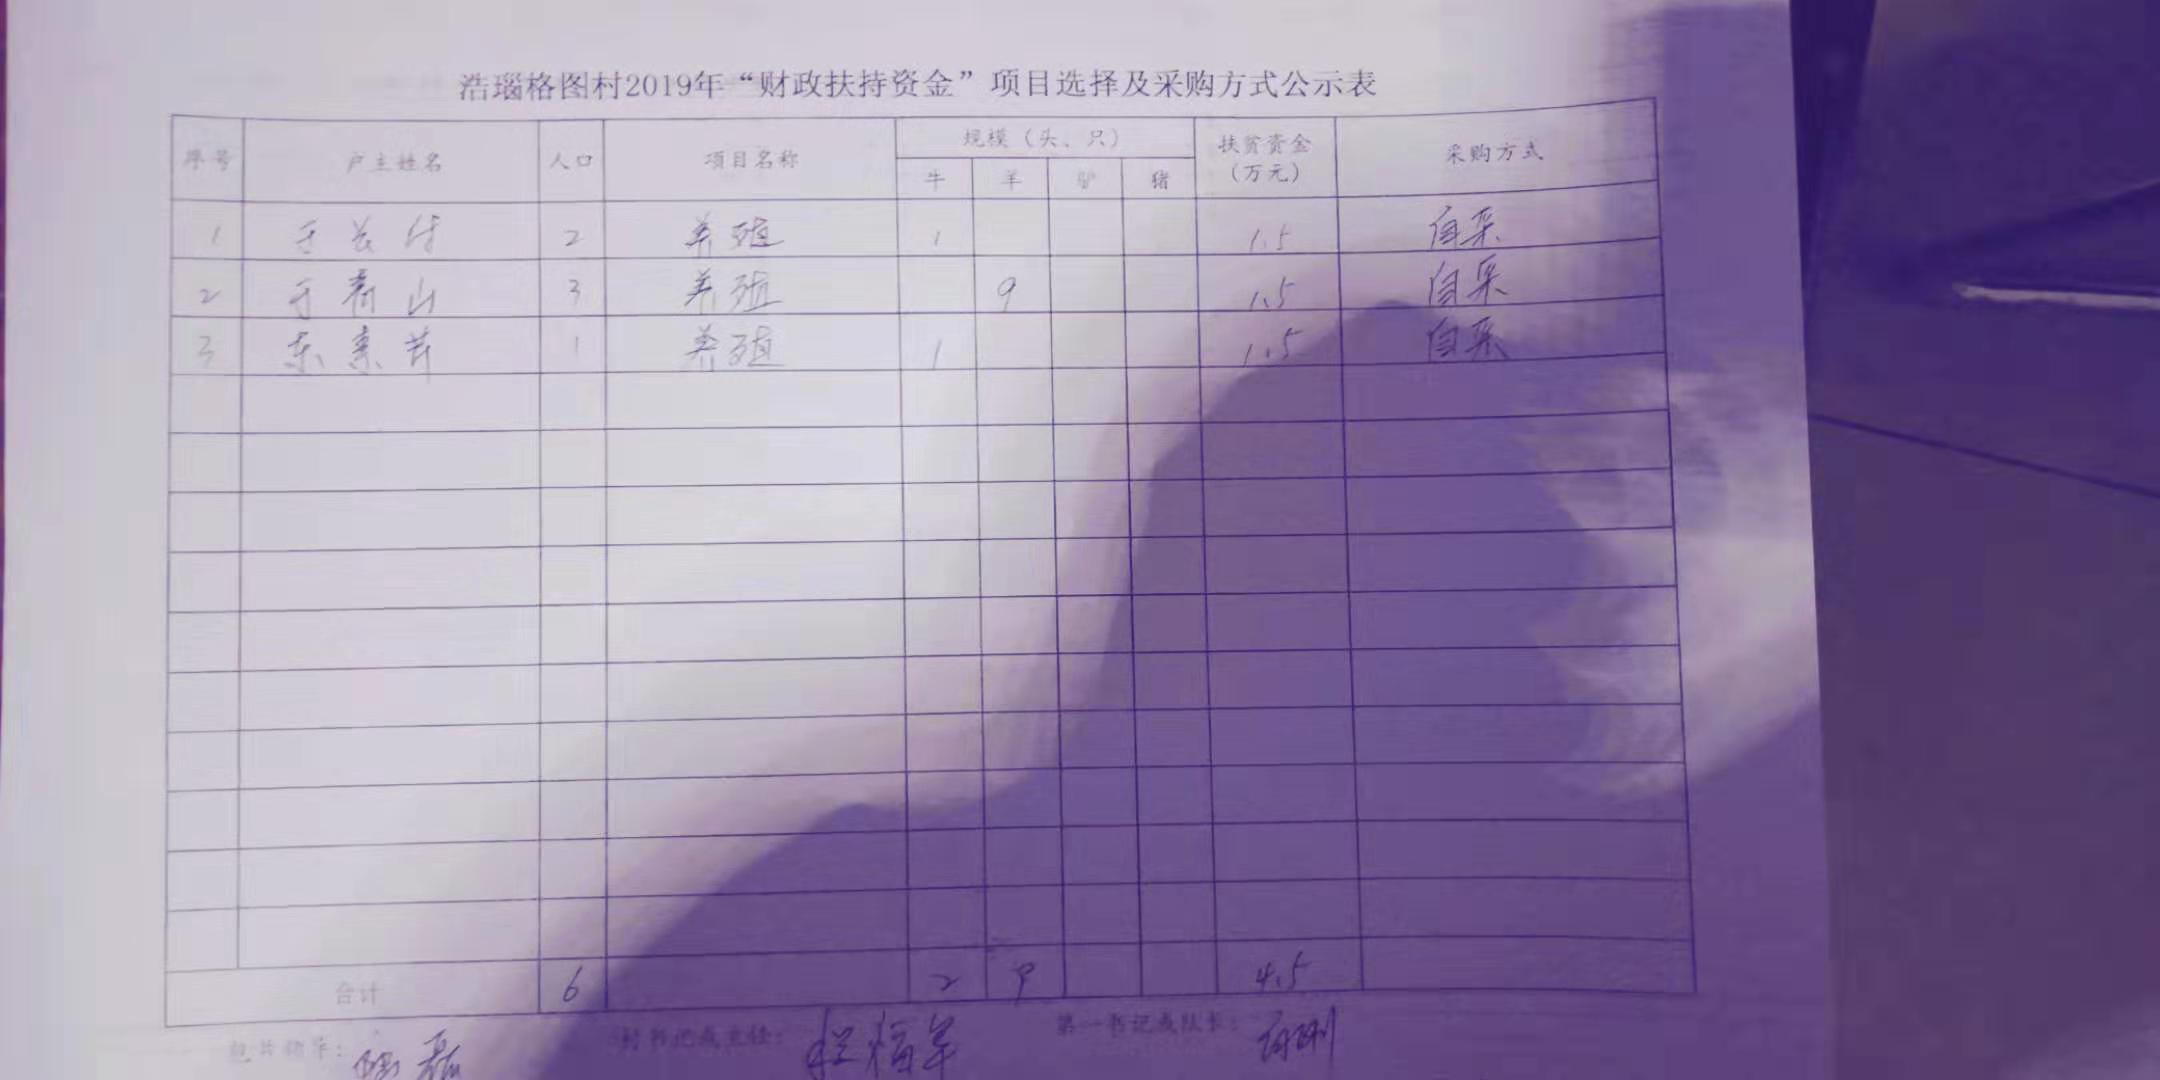 浩瑙格图村2019年“财政扶持资金”项目选择及采购方式公示表
序号 户主姓名 人口 项目名称 规模（头、只） 扶贫资金（万元） 采购方式
牛 羊 驴 猪
1 于长付 2 养殖 1 1.5 自采
2 于青山 3 养殖 9 1.5 自采
3 1 养殖 1 1.5 自采
合计 6 2 9 4.5
包片领导： 村书记或主任： 第一书记或队长：